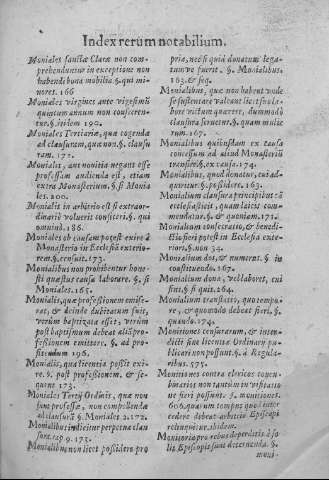 Index rerum notabilium.
Moniales sanctæ Claræ non com-
prehenduntur in exceptione non
habendi bona mobilia §. qui mi-
nores. 166
Moniales virgines ante vigesimū
quintum annum non consecren-
tur. §. item 190.
Moniales Tertiariæ, quæ cogenda
ad clausuram, quæ non. §. clausu-
ram. 171.
Moniali, ante novitia negant esse
professam audienda est, etiam
extra Monasterium. §. si Monia
les. 200.
Monialis in arbitrio est si extraor-
dinarii voluerit consiteri. §. qui
omnino. 186.
Moniales ob causam potest exire à
Monasterio in Ecclesia exterio-
rem. §. censuit. 173.
Monialibus non prohibentur hone-
sti quæstus causa laborare. §. si
Moniales. 165.
Monialis, quæ professionem emise-
rat, & deinde dubitatum fuit,
verùm baptizata esset, verùm
post baptismum debeat aliā pro-
fessionem emittere. §. ad pro-
fitendum 196.
Monialis, qua licentia possit exi-
re. §. post professionem, & se-
quent 173.
Moniales Tertij Ordinis, quæ non
sunt professæ, non compellendæ
ad clausurā §. Moniales 2. 172.
Monialibus indicitur perpetua clau
sura. cap 9. 173.
Monialibus non licet possidere pro
pria, nec si quid donatum lega-
tum ve fuerit. §. Monialibus.
163. & seq.
Monialibus, quæ non habent unde
se sustentare valeant licet sua la-
bore victum quærere, dummodo
clausura servetur. §. quam multæ
rum. 167.
Monialibus quibusdam ex causa
concessum ad aliud Monasteriū
transire. §. ex causa. 174.
Monialibus, quod donatur, cui ad-
quiritur. §. possidere. 163.
Monialium clausura principibus tā
ecclesiasticis, quam laicis com-
mendatur. §. & quoniam. 171.
Monialium consecratio, & benedi-
ctio fieri potest in Ecclesia exte-
riori. §. non 34.
Monialium dos, & numerus. §. in
constituendo. 167.
Monialium dona, vel labores, cui
sint. §. si quit. 264.
Monialium translatio, quo tempo-
re, & quomodo debeat fieri. §.
quando. 174.
Monitiones censurarum, & inter-
dicti sine licentia Ordinarij pu-
blicari non possunt. §. à Regula-
ribus. 575.
Monitiones contra clericos concu-
binarios non tantum in visitatio
ne fieri possunt. §. monitiones.
606. quorum tempus quod inter
cedere debeat arbitrio Episcopi
relinquitur. ibidem.
Monitoria pro rebus deperditis à so-
lis Episcopis sunt decernenda. §.
moni-